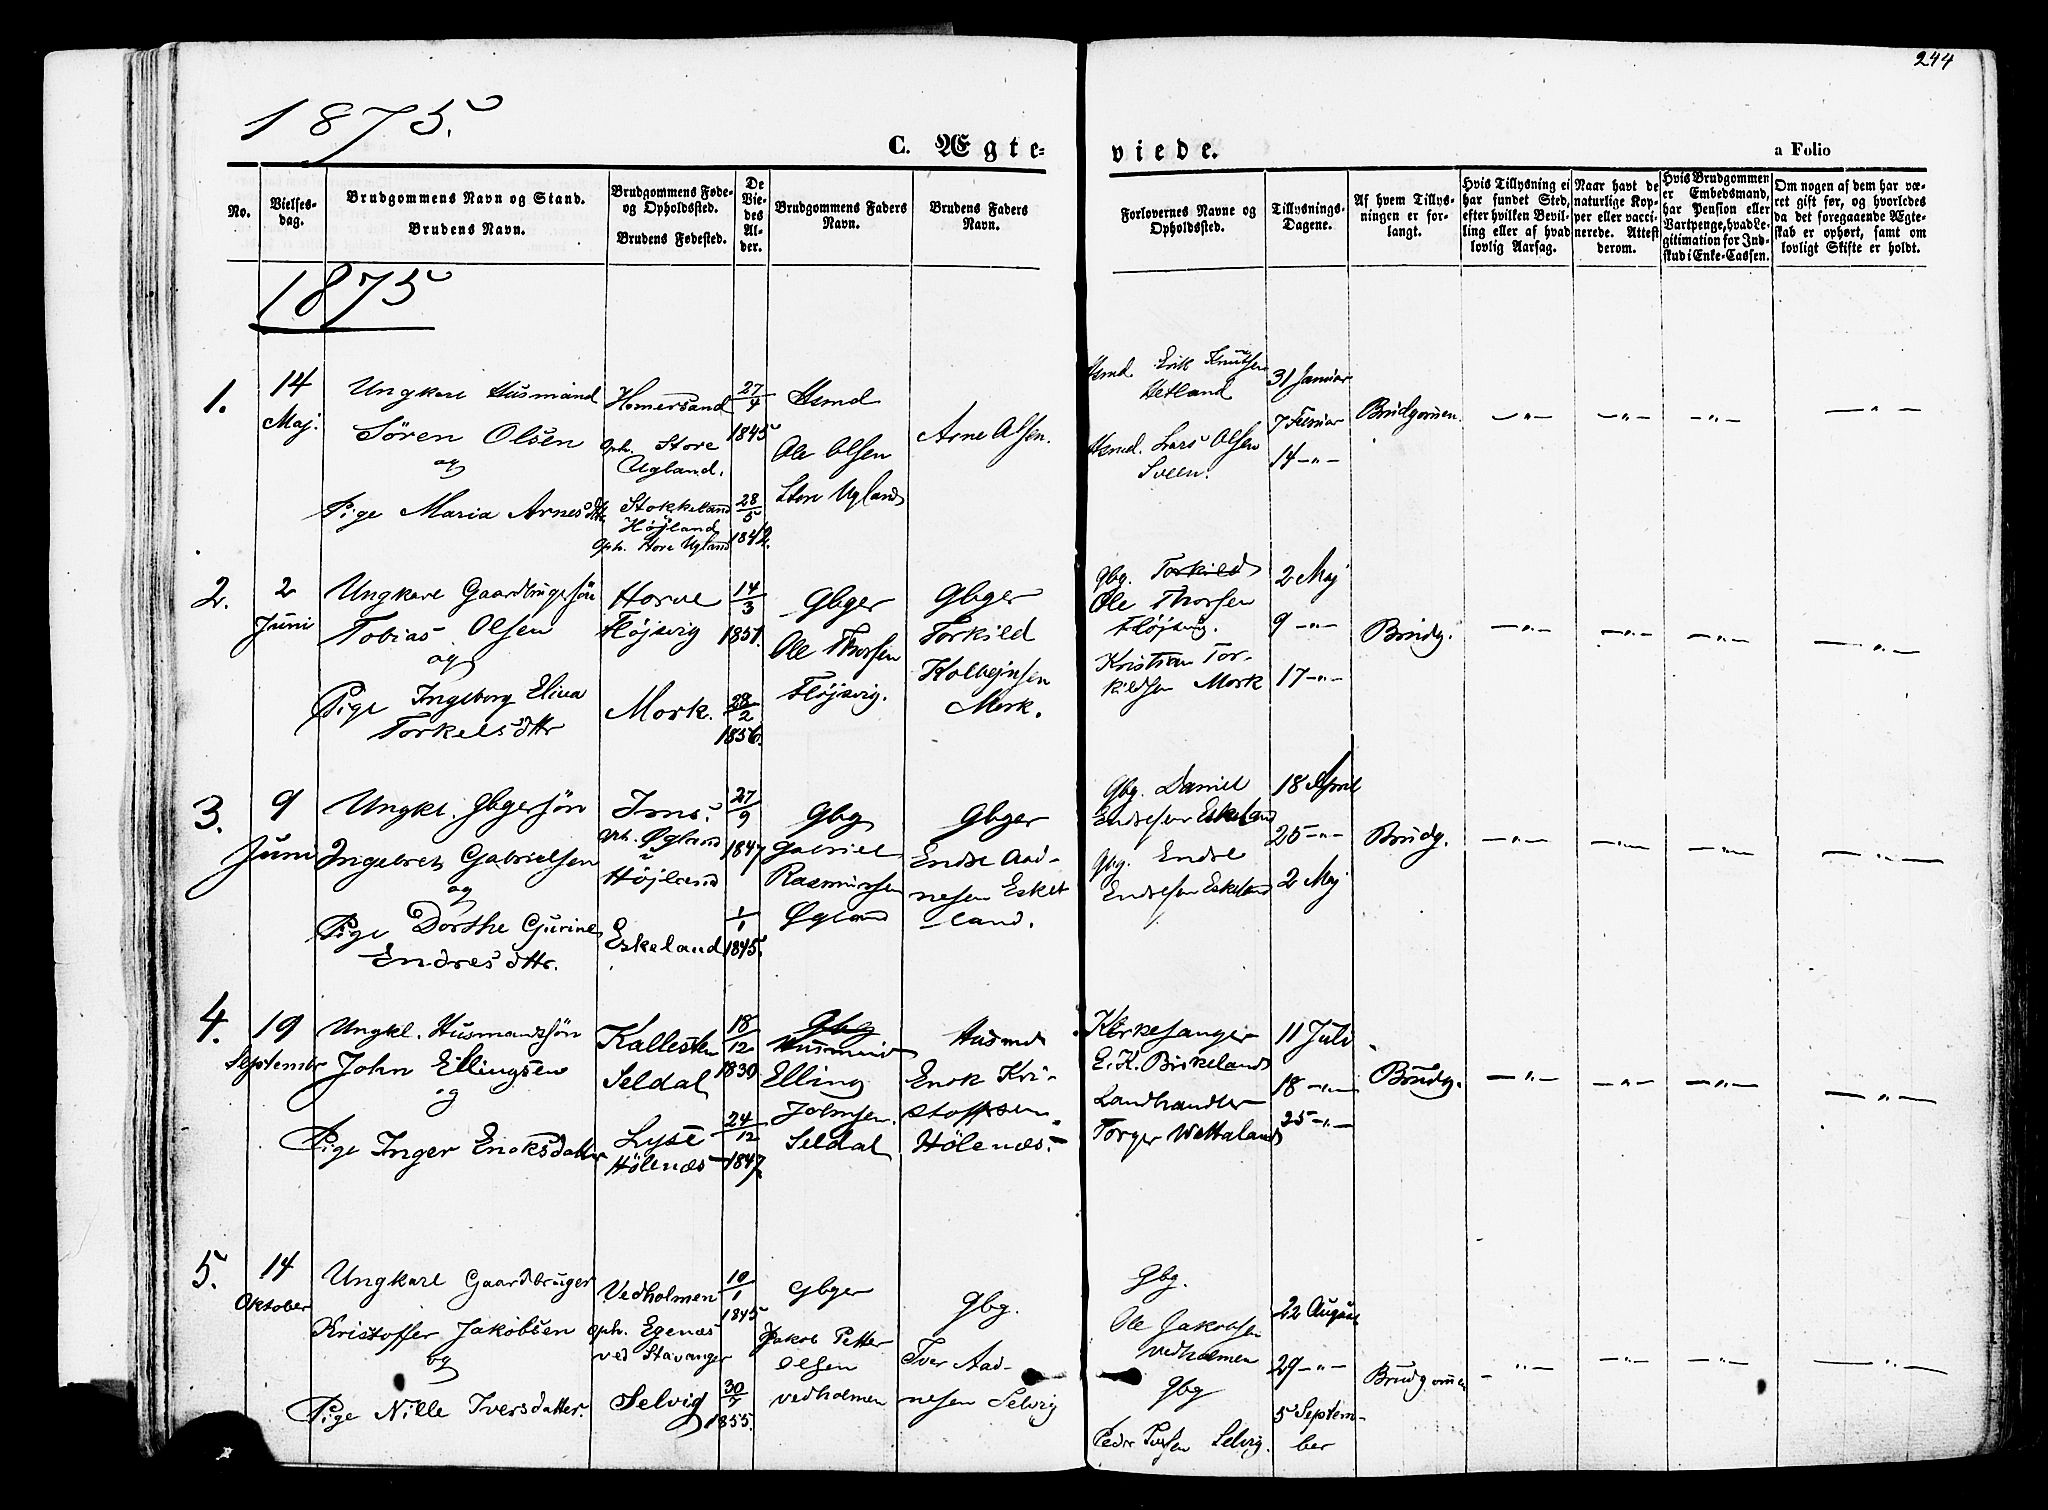 244
1875.
C. Ægte-
viede.
a Folio
No.
Vielses-
dag.
Brudgommens Navn og Stand.
Brudens Navn.
Brudgommens Føde-
og Opholdssted.
Brudens Fødested.
De
Vie-
des
Al-
der.
Brudgommens Faders
Navn.
Brudens Faders
Navn.
Forlovernes Navne og
Opholdssted.
Tillysnings-
Dagene.
Af hvem Tillys-
ningen er for-
langt.
Hvis Tillysning ei
har fundet Sted,
efter hvilken Bevil-
ling eller af hvad
lovlig Aarsag.
Naar havt de
naturlige Kop-
per eller vacci-
nerede. Attest
derom.
Hvis Brudgommen
er Embedsmand,
har Pension eller
Vartpenge, hvad Le-
gitimation for Ind-
skud i Enke-Cassen.
Om nogen af dem har væ-
ret gift før, og hvorledes
da det foregaaende Ægte-
skab er ophørt, samt om
lovligt Skifte er holdt.
1875
1.
14
Maj.
Ungkarl Husmand
Sören Olsen
og
Pige Maria Arnesdttr
Homersand
oph. Store
Ugland.
Stokkeland
Höjland
oph. Store Ugland
27/4
1845
28/5
1842.
Hsmd
Ole Olsen
Store Ugland
Arne Olsen.
Hsmd. Erik Knutsen
Hetland
Hsmd. Lars Olsen
Sveen.
31 Januar
7 Februar
14 – " –
Brudgommen.
– " –
– " –
– " –
– " –
2.
2
Juni
Ungkarl Gaardbrugersön
Tobias Olsen
og
Pige Ingeborg Elina
Torkelsdttr
Horve
Flöjsvig
Mork.
14/3
1851.
28/2
1856.
Gbger
Ole Thorsen
Flöjsvig.
Gbger
Torkild
Kolbejnsen
Mork.
Gbg. Torkild
Ole Thorsen
Flöjsvig.
Kristian Tor-
kildsen Mork
2 Maj
9 – " –
17 – " –
Brudg.
– " –
– " –
– " –
– " –
3.
9
Juni
Ungkl. Gbgersön
Ingebret Gabrielsen
og
Pige Dorthe Gurine
Endresdttr.
Ims.
oph. Øgland
i
Höjland
Eskeland
27/9
1847
1/1
1845.
Gbg
Gabriel
Rasmussen
Øgland
Gbger
Endre Aad-
nesen Eske-
land.
Gbg. Daniel
Endresen Eskeland
Gbg. Endre
Endresen Eskeland
18 April
25 – " –
2 Maj
Brudg.
– " –
– " –
– " –
– " –
4.
19
September
Ungkl. Husmandssön
John Ellingsen
og
Pige Inger Enoksdatter
Kallesten
Seldal
Lyse
Hölenæs
18/12
1830
24/12
1847.
Gbg
Husmand
Elling
Johnsen.
Seldal
Husmd
Enok Kri-
stoffersen
Hölenæs.
Kirkesanger
E. K. Birkeland
Landhandler
Torger Wattaland
11 Juli
18 – " –
25 – " –
Brudg.
– " –
– " –
– " –
– " –
5.
14
Oktober
Ungkarl Gaardbruger
Kristoffer Jakobsen
og
Pige Nille Iversdatter.
Vedholmen
oph. Egenæs
ved Stavanger
Selvig
10/1
1845
1855.
Gbger
Jakob Petter
Olsen
Vedholmen
Gbg.
Iver Aad-
nesen Selvig
Gbg.
Ole Jakobsen
Vedholmen
Gbg
Peder Iversen Selvig.
22 August
29 – " –
5 Septem-
ber
Brudgommen
– " –
– " –
– " –
– " –